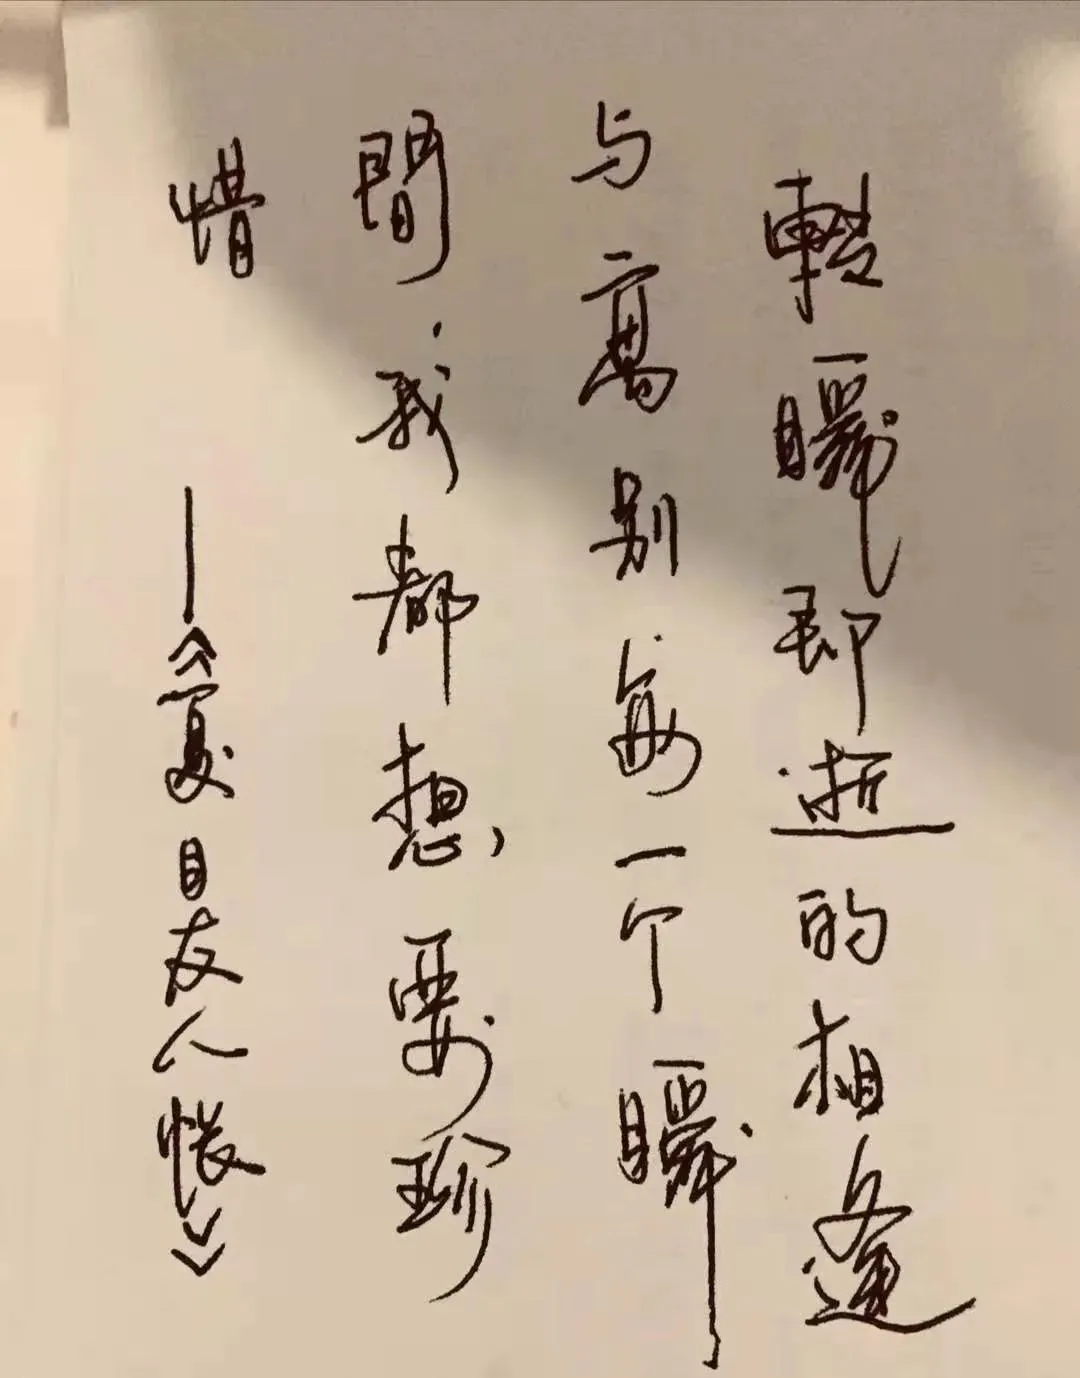 轉瞬即逝的相逢
与离别每一个瞬
間.我都想要珍
惜 ——《夏目友人帳》